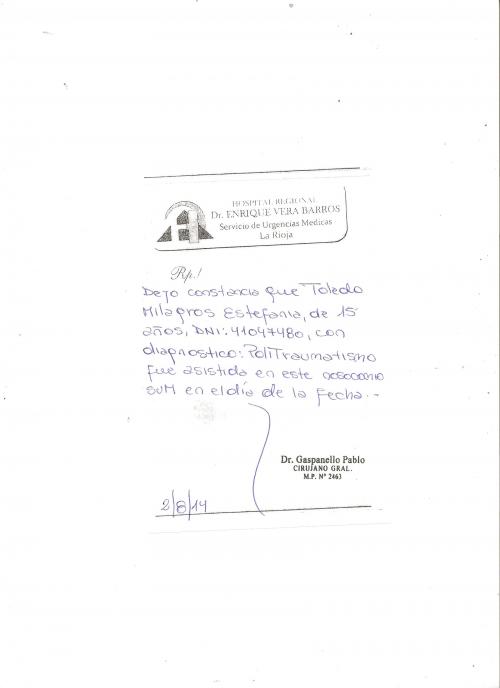 HOSPITAL REGIONAL
Dr. ENRIQUE VERA BARROS
Servicio de Urgencias Medicas
La Rioja
Rp.!
Dejo constancia que Toledo
Milagros Estefania, de 15
años, DNI: 41047480, con
diagnostico: PoliTraumatismo
fue asistida en este nosocomio
SUM en el día de la fecha.-
Dr. Gaspanello Pablo
CIRUJANO GRAL.
M.P. Nº 2463
2/8/14